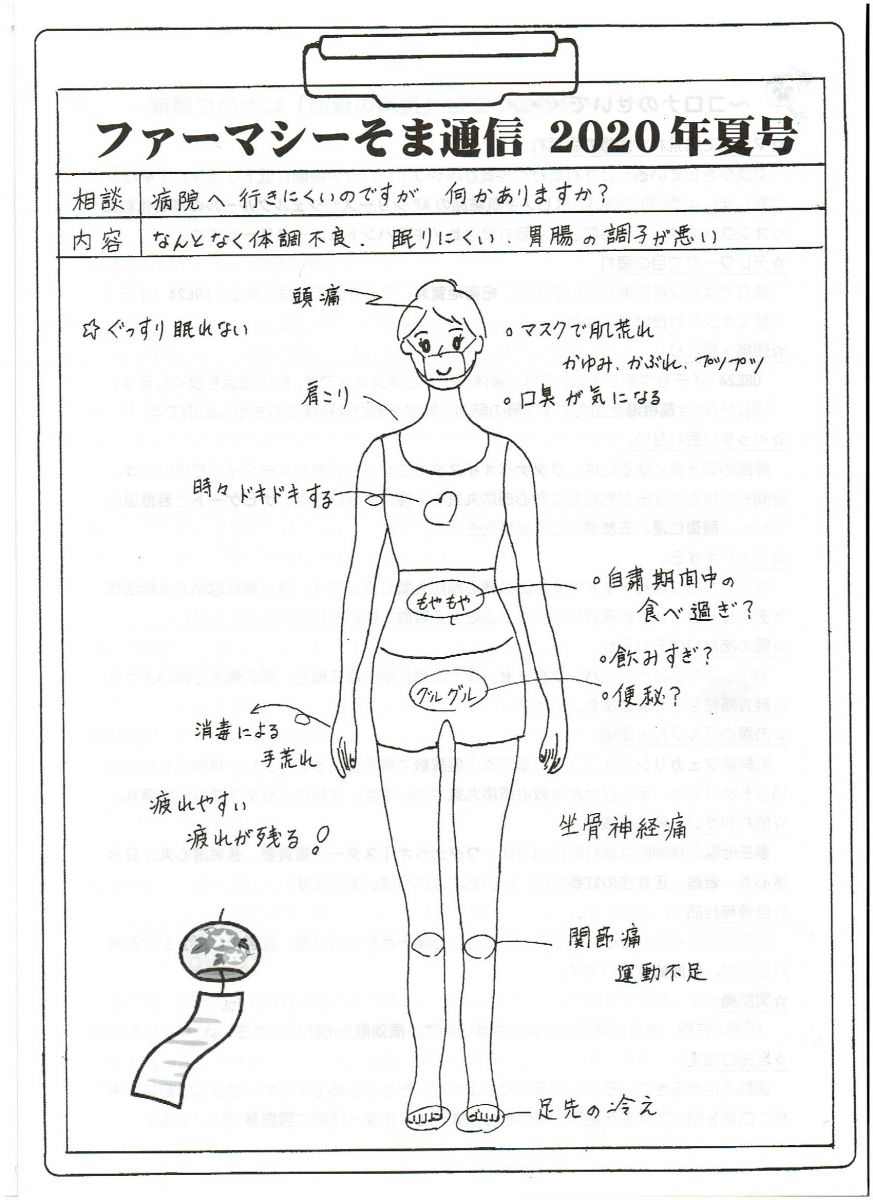 ファーマシーそま通信 2020年夏号
相談 病院へ行きにくいのですが 何かありますか?
内容 なんとなく体調不良. 眠りにくい. 胃腸の調子が悪い
頭痛
☆ぐっすり眠れない
○マスクで肌荒れ
かゆみ、かぶれ、プツプツ
肩こり
○口臭が気になる
時々ドキドキする
もやもや
○自粛期間中の
食べ過ぎ?
○飲みすぎ?
グルグル
○便秘?
消毒による
手荒れ
疲れやすい
疲れが残る!
坐骨神経痛
関節痛
運動不足
足先の冷え